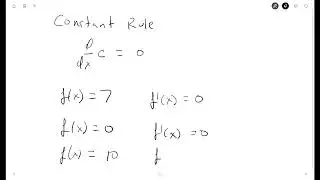 Constant Rule
d/dx c = 0
f(x) = 7 f'(x) = 0
f(x) = 0 f'(x) = 0
f(x) = 10 f